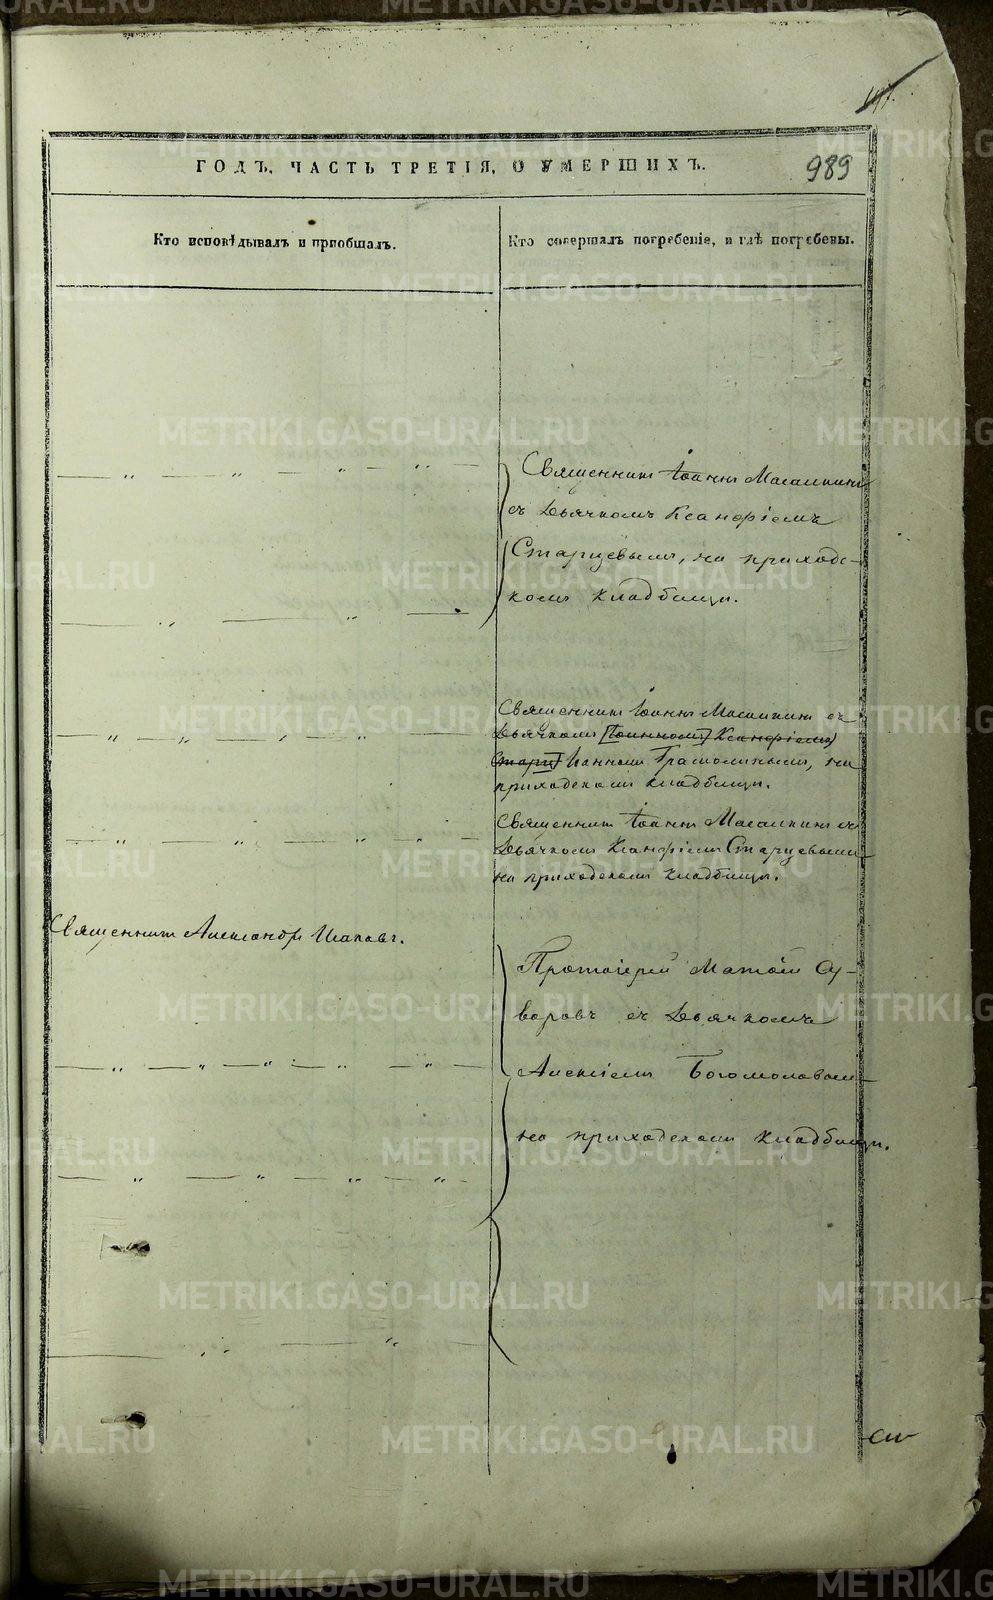 989
ГОДЪ, ЧАСТЬ ТРЕТІЯ, О УМЕРШИХЪ.
Кто исповѣдывалъ и пріобщалъ.
Кто совершалъ погребеніе, и гдѣ погребены.
Священникъ Іоаннъ
съ Дьячкомъ Ксанфіемъ
Старцевымъ, на приходс-
комъ кладбищѣ.
Священникъ Іоаннъ съ
Дьячкомъ [Іоанномъ] Ксанфіемъ
Іоанномъ на
приходскомъ кладбищѣ.
Священникъ Іоаннъ съ
Дьячкомъ Ксанфіемъ Старцевымъ
на приходскомъ кладбищѣ.
Священникъ Александръ
Протоіерей Матѳій Су-
воровъ съ Дьячкомъ
Алексіемъ Богомоловымъ
на приходскомъ кладбищѣ.
METRIKI.GASO-URAL.RU